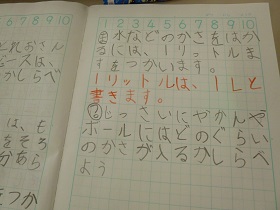 6 7 8 9 10
れおさん
ースは、
かしらべ
は、も
をそろ
をつか
1 2 3 4 5 6 7 8 9 10
水などのかさをはか
るには、1リットルま
すをつかいます。
1リットルは、1Lと
書きます。
じっさいにやかんや
ボールにはどのぐらい
のかさが入るかしらべ
よう